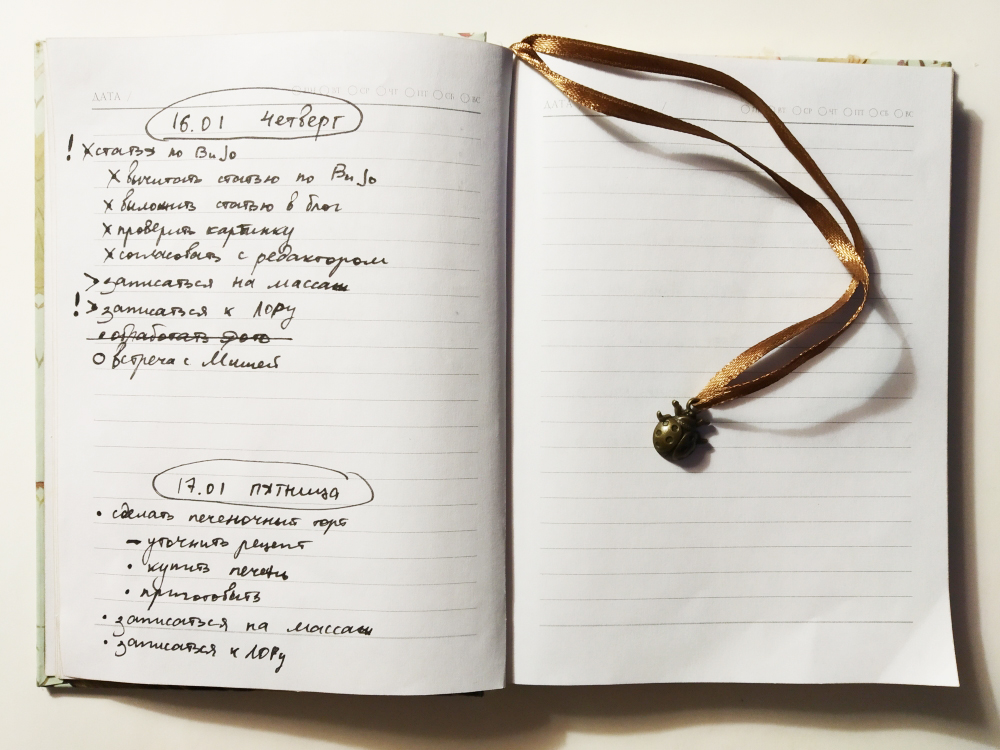 ДАТА /
ПН ВТ СР ЧТ ПТ СБ ВС
16.01 Четверг
! × статья по BuJo
× вычитать статью по BuJo
× выложить статью в блог
× проверить картинку
× согласовать с редактором
> записаться на массаж
! > записаться к ЛОРу
• обработать фото
○ встреча с Мишей
17.01 пятница
• сделать печеночный торт
– уточнить рецепт
• купить печень
• приготовить
• записаться на массаж
• записаться к ЛОРу
ДАТА /
ПН ВТ СР ЧТ ПТ СБ ВС